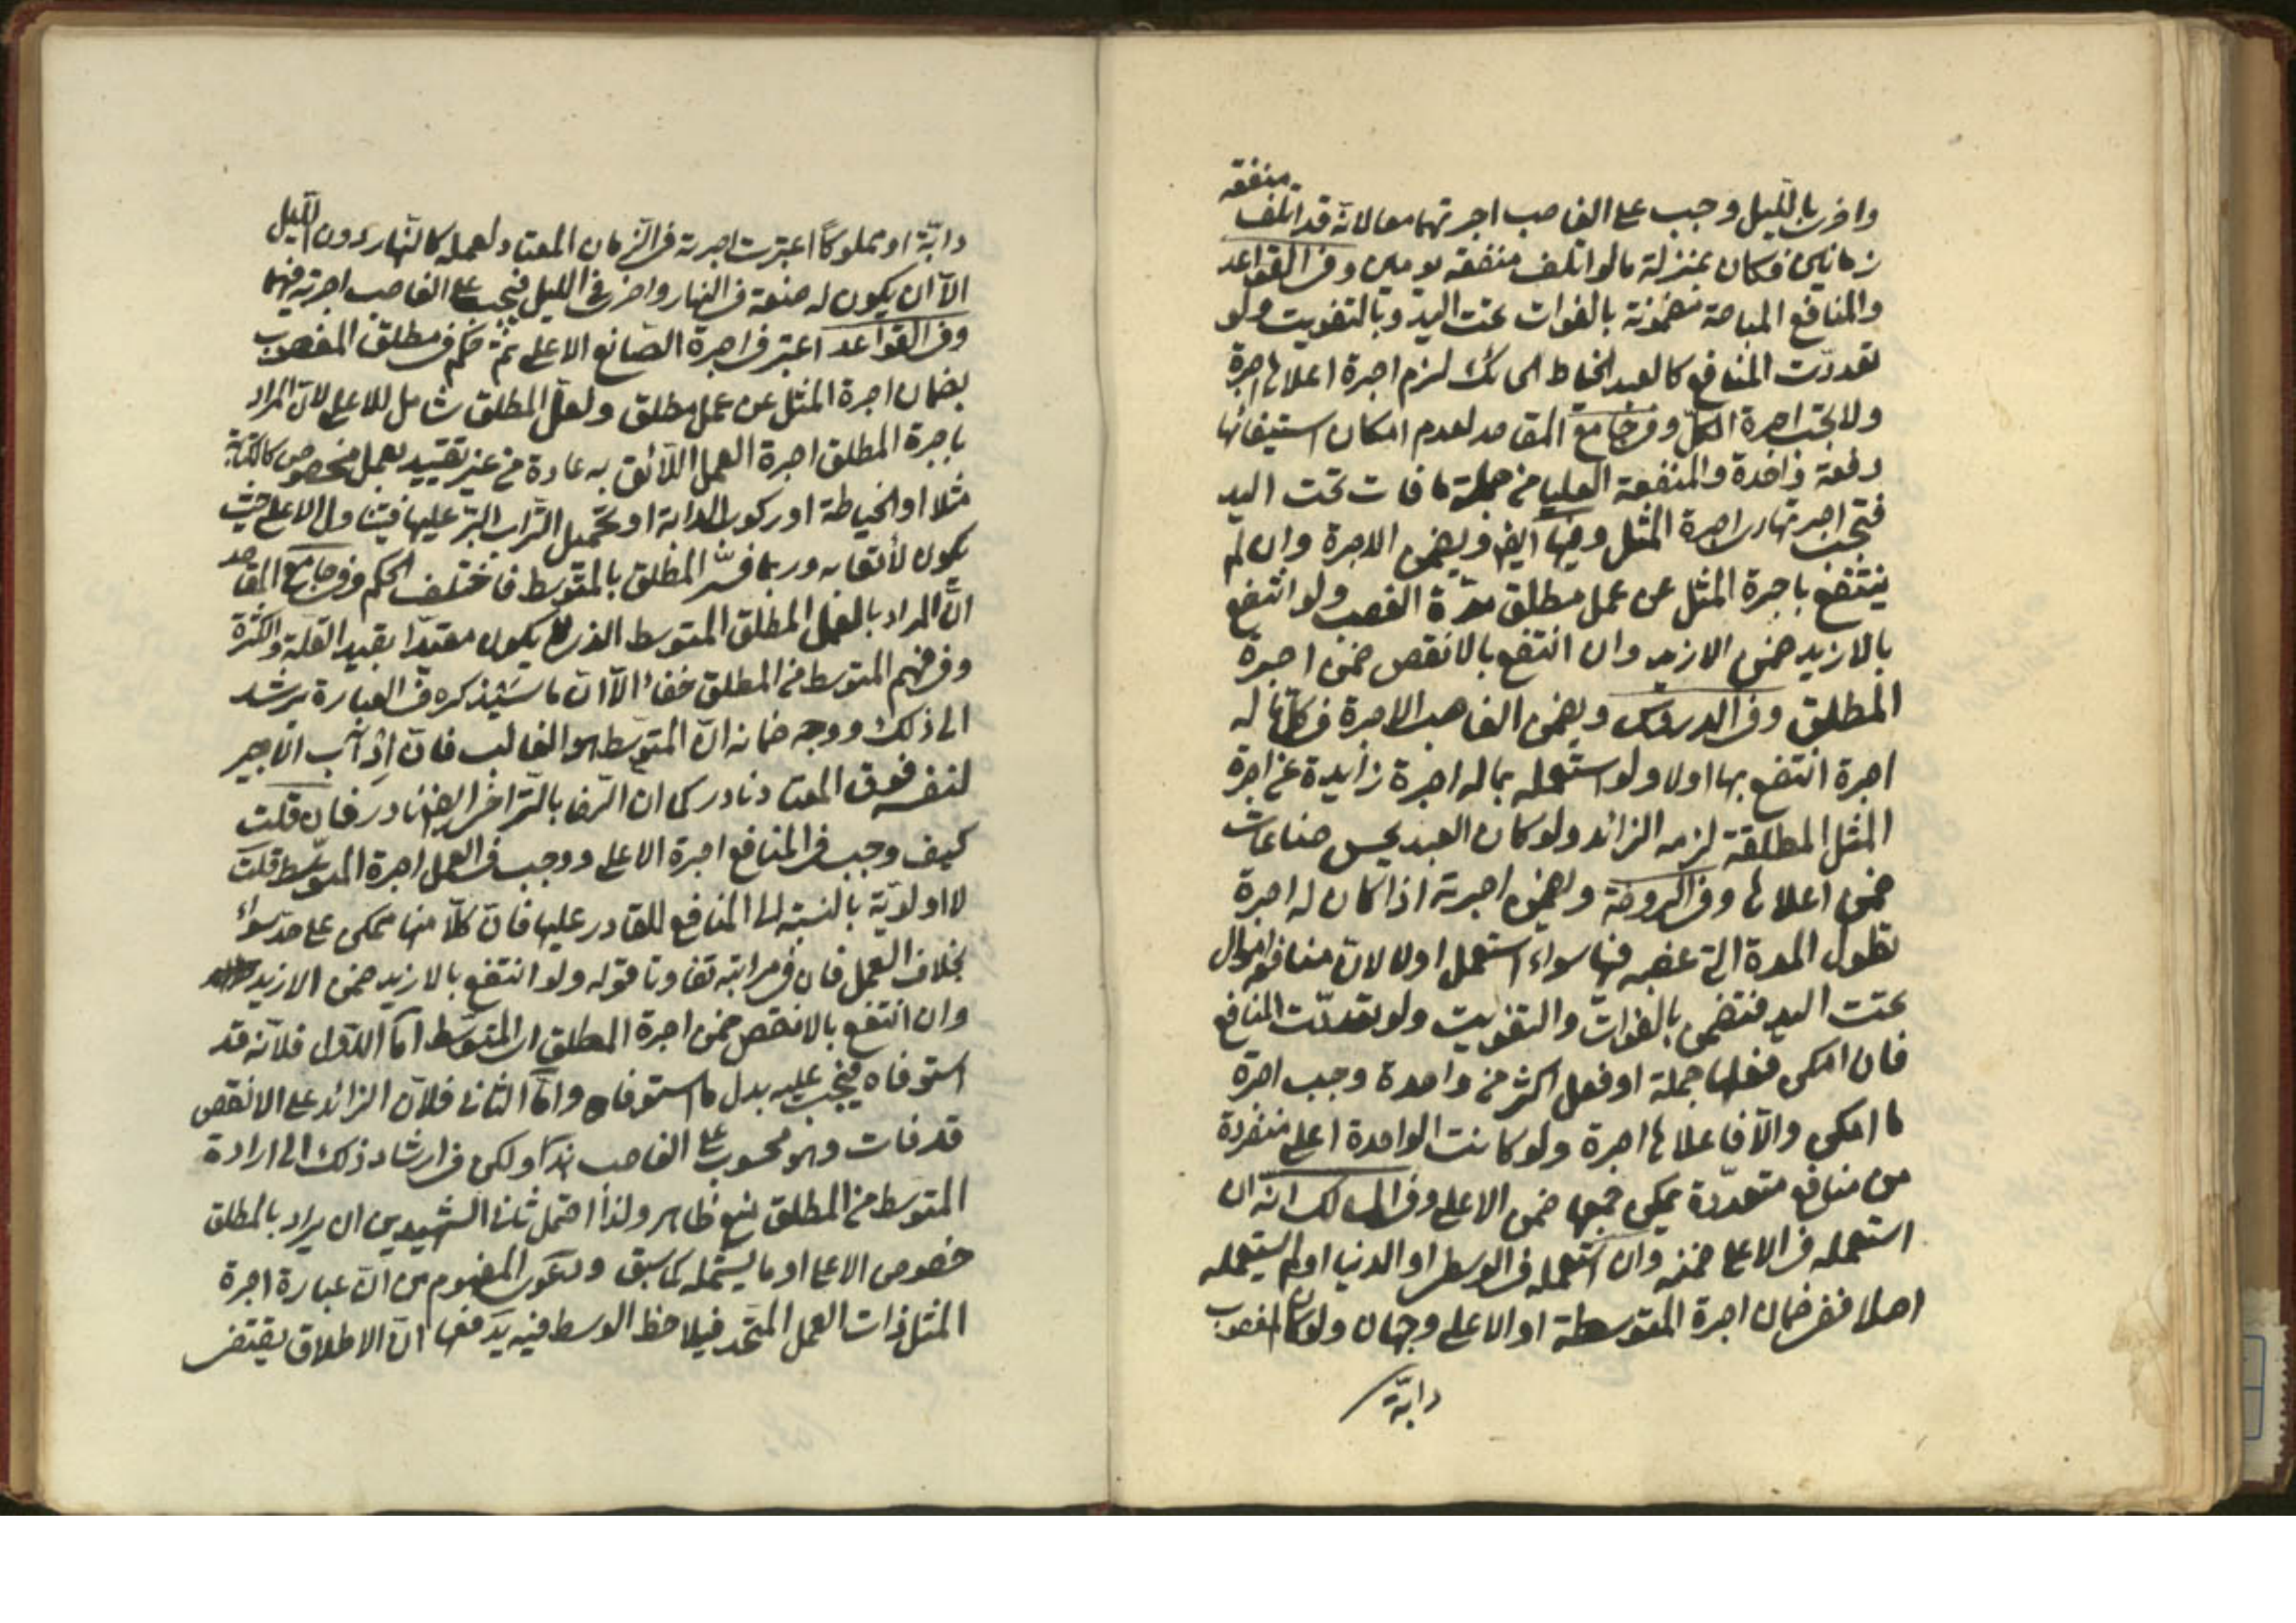 منفعة
واخرى بالليل وجب على الغاصب اجرتهما معا لانه قد اتلف
زمانين فكان بمنزلة ما لو اتلف منفعة يومين وفى القواعد
والمنافع المباحة مضمونة بالفوات تحت اليد وبالتفويت ولو
تعددت المنافع كالعبد الخياط الحائك لزم اجرة اعلاها اجرة
ولا تجب اجرة الكل وفى جامع المقاصد لعدم امكان استيفائها
دفعة واحدة والمنفعة العليا من جملة ما فات تحت اليد
فتجب اجرتها اى اجرة المثل وفيها ايضا ويضمن الاجرة وان لم
ينتفع باجرة المثل عن عمل مطلق مدة الغصب ولو انتفع
بالازيد ضمن الازيد وان انتفع بالانقص ضمن اجرة
المطلق وفى الدروس ويضمن الغاصب الاجرة فى كل ما له
اجرة انتفع بها اولا ولو استعمله بما له اجرة زايدة عن اجرة
المثل المطلقة لزمه الزائد ولو كان العبد يحسن صناعات
ضمن اعلاها وفى الروضة ويضمن اجرته اذا كان له اجرة
لطول المدة التى غصبه فيها سواء استعمل اولا لان منافعه اموال
تحت اليد فتضمن بالفوات والتفويت ولو تعددت المنافع
فان امكن فعلها جملة او فعل اكثر من واحدة وجب اجرة
ما امكن والّا فاعلاها اجرة ولو كانت الواحدة اعلى منفردة
من منافع متعددة يمكن جمعها ضمن الاعلى وفى المسالك انه ان
استعمله فى الاعلى ضمنه وان استعمله فى الوسطى او الدنيا او لم يستعمله
اصلا ففى ضمان اجرة المتوسطة او الاعلى وجهان ولو كان المغصوب
دابّة
دابّة او مملوكاً اعتبرت اجرته فى الزمان المعتاد لعمله كالنهار دون الليل
الّا ان يكون له صنعة فى النهار واخرى فى الليل فيجب على الغاصب اجرته فيهما
وفى القواعد اعتبر فى اجرة الصانع الاعلى ثم حكم فى مطلق المغصوب
بضمان اجرة المثل عن عمل مطلق ولعل المطلق شامل للاعلى لان المراد
باجرة المطلق اجرة العمل اللائق به عادة من غير تقييد بعمل مخصوص كالكتابة
مثلا او الخياطة او ركوب الدابة او تحميل التراب البتر عليها فيتناول الاعلى حيث
يكون لائقا به وربما فسّر المطلق بالمتوسط فاختلف الحكم وفى جامع المقاصد
انّ المراد بالعمل المطلق المتوسط الذى لا يكون مقيدا بقيد القلة والكثرة
وفى فهم المتوسط من المطلق خفاء الّا ان ما سيذكره فى العبارة يرشد
الى ذلك ووجه ضمانه ان المتوسط هو الغالب فان اذآب الاجير
لنفسه فوق المعتاد نادر كما ان الرضا بالتراخى ايضا نادر فان قلت
كيف وجب فى المنافع اجرة الاعلى ووجب فى العمل اجرة المتوسط قلت
لا اولوية بالنسبة الى المنافع للقادر عليها فان كلّا منها ممكن على حد سواء
بخلاف العمل فان فى مراتبه تفاوتا قوله ولو انتفع بالازيد ضمن الازيد
وان انتفع بالانقص ضمن اجرة المطلق اى المتوسط امّا الاول فلانه قد
استوفاه فيجب عليه بدل ما استوفاه وامّا الثانى فلان الزائد على الانقص
قد فات وهو محسوب على الغاصب هذا ولكن فى ارشاد ذلك الى ارادة
المتوسط من المطلق نوع ظاهر ولذا احتمل ثانى الشهيدين ان يراد بالمطلق
خصوص الاعلى او ما يشمله كما سبق ودعوى المفهوم من ان عبارة اجرة
المثل ذات العمل المتحد فيلاحظ الوسط فيه يدفعها ان الاطلاق يقتضى